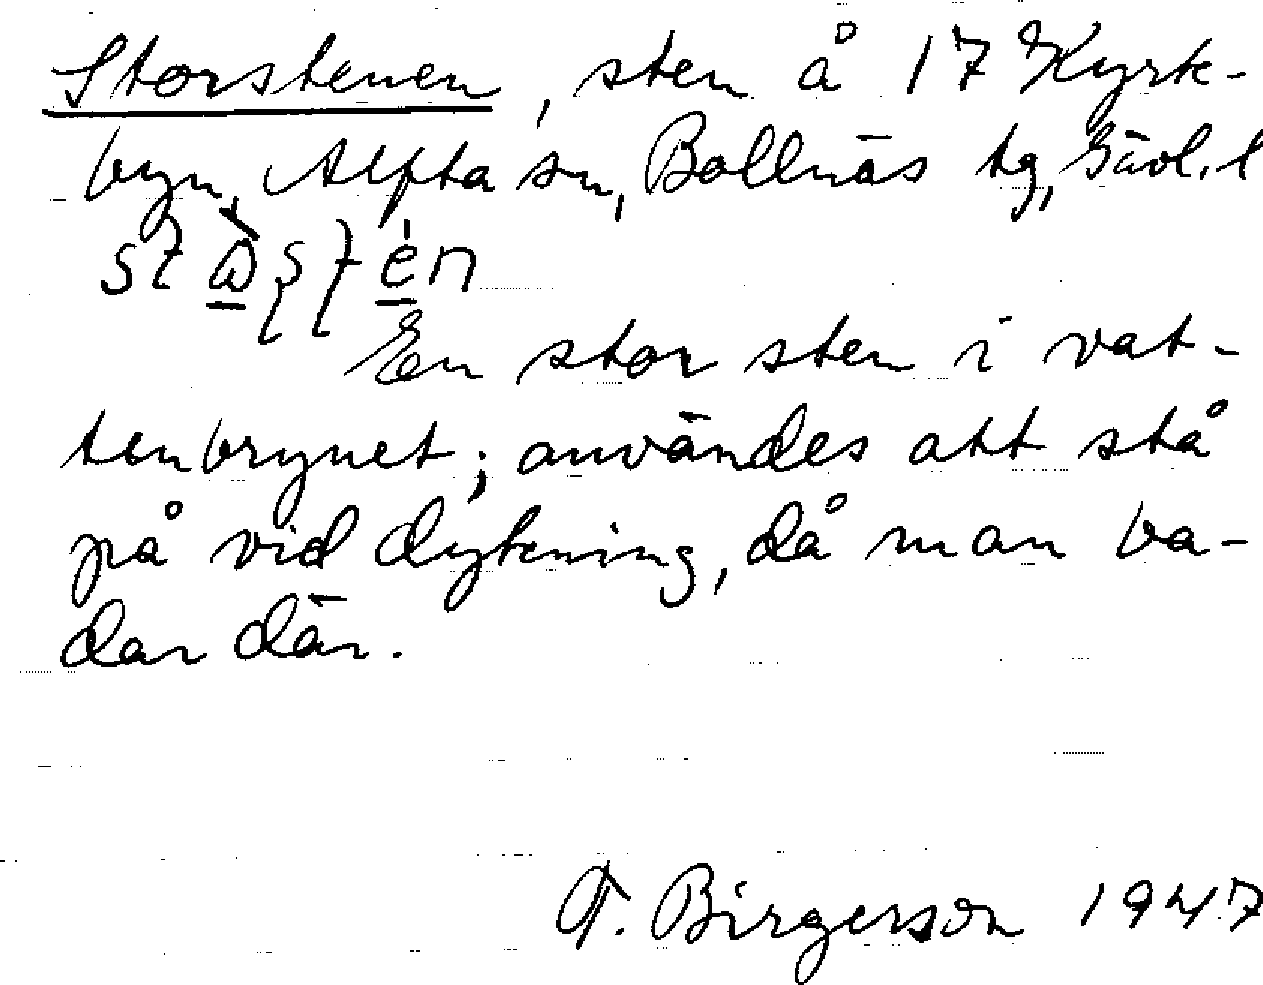 Storstenen, sten å 17 Kyrk-
byn, Alfta sn, Bollnäs tg, Gävl. l
En stor sten i vat-
tenbrynet; användes att stå
på vid dykning, då man ba-
dar där.
Birgerson 1947